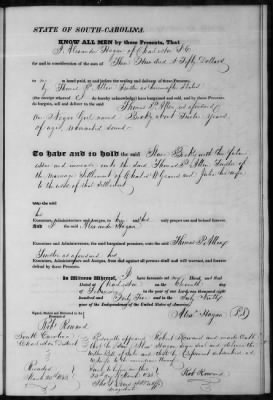 STATE OF SOUTH-CAROLINA.
KNOW ALL MEN by these Presents, That
I Alexander Hogan of Charleston S.C.
for and in consideration of the sum of Three Hundred & Fifty Dollars
to me in hand paid, at and before the sealing and delivery of these Presents,
by Thomas P. Allen Trustee as hereinafter stated
(the receipt whereof I do hereby acknowledge) have bargained and sold, and by these Presents
do bargain, sell and deliver to the said Thomas P. Allen as aforesaid
One Negro Girl named Becky about Twelve Years
of age, warranted sound
To have and to hold the said Slave Becky with the future
issue and increase unto the said Thomas P. Allen Trustee of
the Marriage Settlement of Charles and his wife
to the uses of that Settlement
unto the said
his
Executors, Administrators and Assigns, to his and their only proper use and behoof forever.
And I the said Alexander Hogan
Executors, Administrators, for the said bargained premises, unto the said Thomas P. Allen
Trustee as aforesaid his
Executors, Administrators and Assigns, from and against all persons shall and will warrant, and forever
defend by these Presents.
In Witness Whereof, I have hereunto set my Hand and Seal
Dated at Charleston on the Eleventh day
of February in the year of our Lord one thousand eight
hundred and Forty Five and in the Sixty Ninth
year of the Independence of the United States of America.
Signed, Sealed and Delivered in the Presence of
Alexr Hogan (L.S.)
Robt Howard
South Carolina
Charleston District
Personally appeared Robert Howard and made Oath
that he saw Alexr Hogan sign seal and deliver the
within Bill of Sale and that he
witness to the
Sworn to before me this
February 1845
Recorded
March 1845
Robt Howard
Magistrate